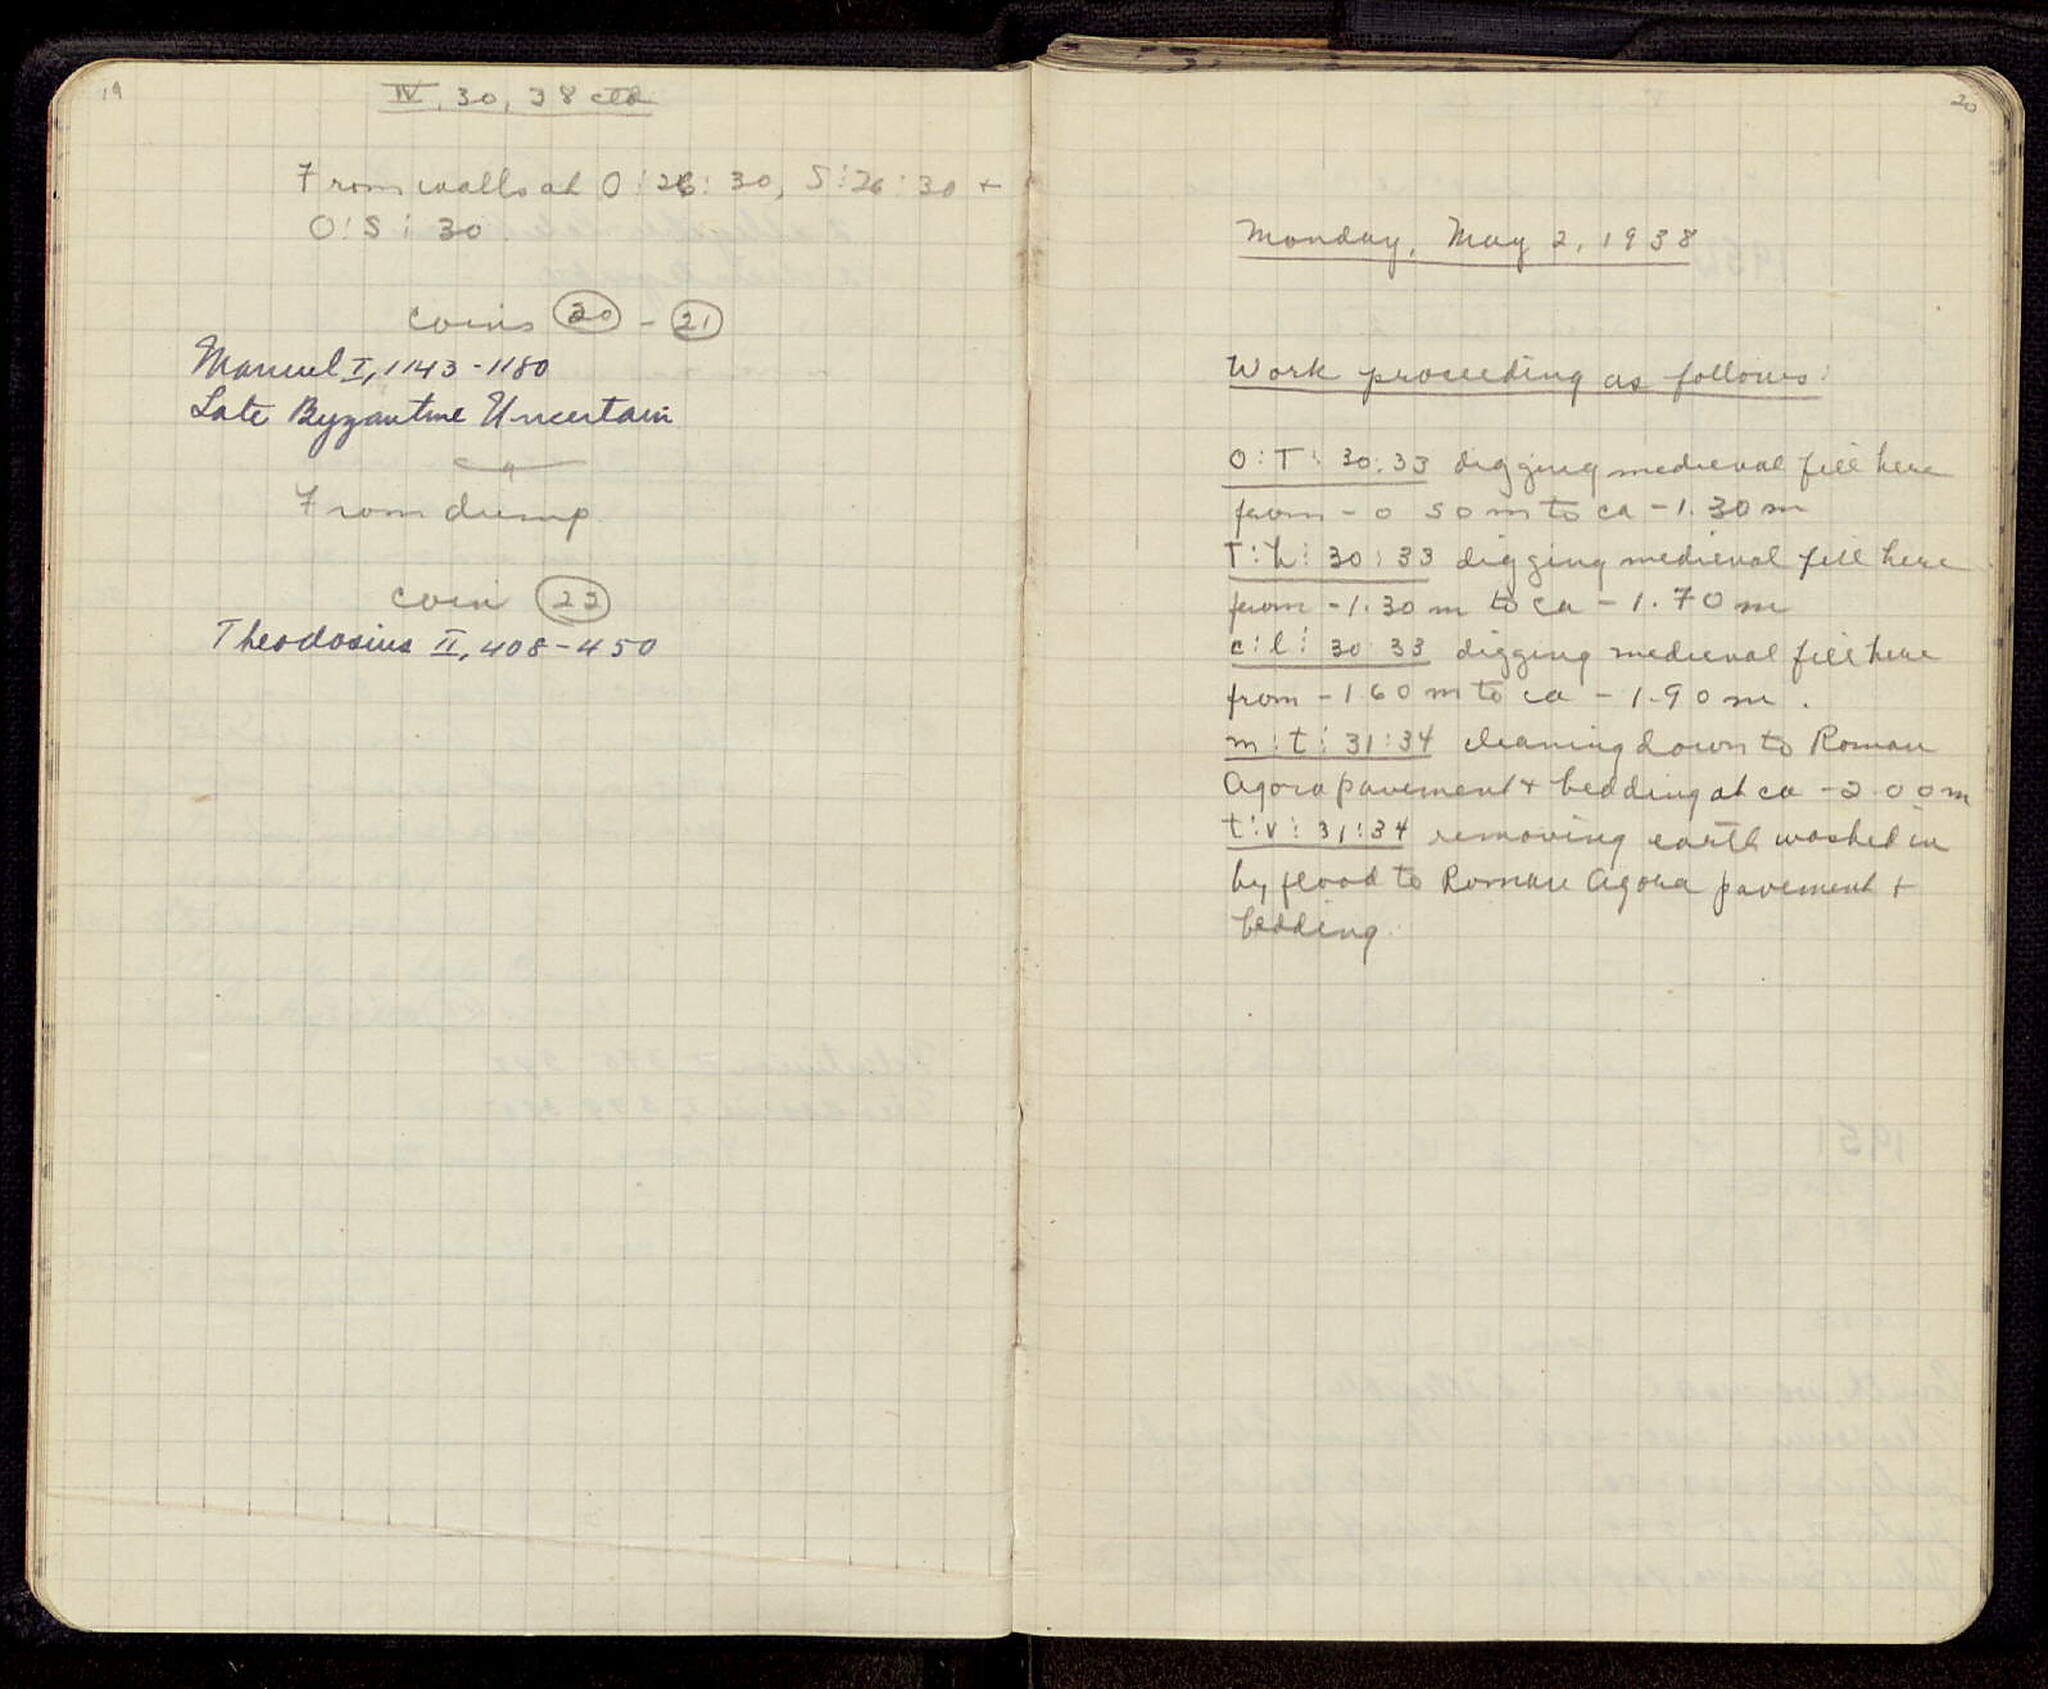 19
IV, 30, 38 ctd
From walls at O:26:30, S:26:30 +
O:S:30
coins 20 - 21
Manuel I, 1143-1180
Late Byzantine Uncertain
From dump
coin 22
Theodosius II, 408-450
20
Monday, May 2, 1938
Work proceeding as follows:
O:T:30:33 digging medieval fill here
from -0.50m to ca -1.30m
T:h:30:33 digging medieval fill here
from -1.30m to ca -1.70m
c:l:30:33 digging medieval fill here
from -1.60m to ca -1.90m.
m:t:31:34 cleaning down to Roman
Agora pavement + bedding at ca -2.00m
t:v:31:34 removing earth washed in
by flood to Roman Agora pavement +
bedding.